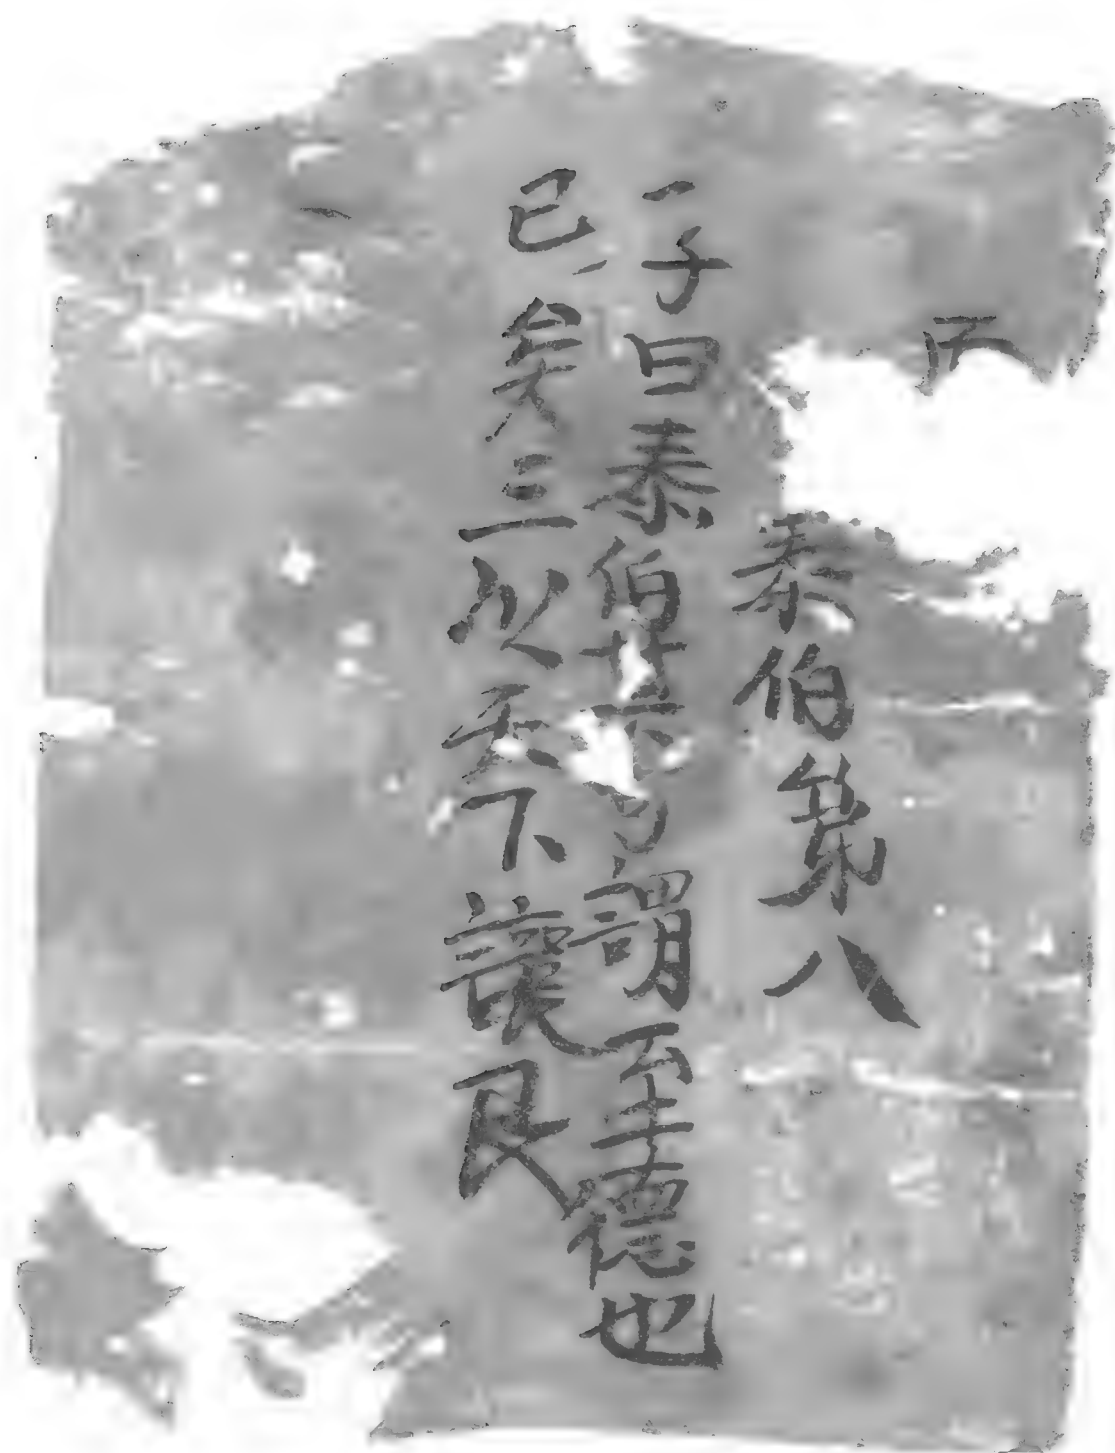 泰伯第八
子曰泰伯其可謂至德也
已矣三以天下讓民